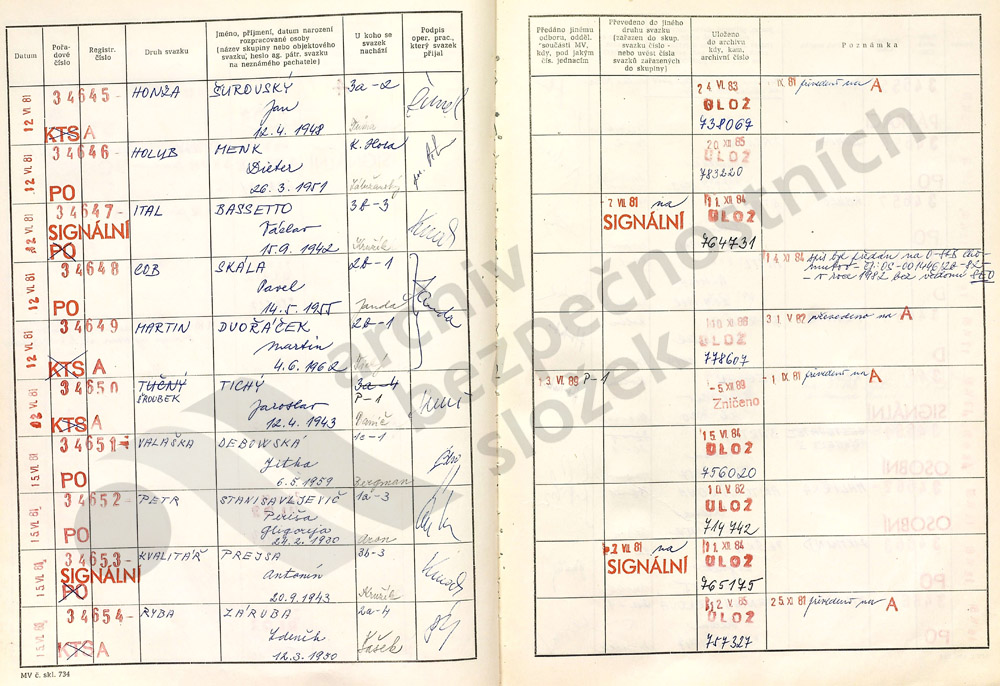 Datum
Pořadové číslo
Registr. číslo
Druh svazku
Jméno, příjmení, datum narození rozpracované osoby (název skupiny nebo objektového svazku, heslo ag. pátr. svazku na neznámého pachatele)
U koho se svazek nachází
Podpis oper. prac., který svazek přijal
Předáno jinému odboru, odděl. součásti MV, kdy, pod jakým čís. jednacím
Převedeno do jiného druhu svazku (zařazen do skup. svazku číslo - nebo uvést čísla svazků zařazených do skupiny)
Uloženo do archivu kdy, kam, archivní číslo
Poznámka
12 VI. 81 34645 HONZA ŠUROVSKÝ 3a-2
KTS A Jan
12.4. 1948
24 VI. 83
ULOŽ
738067
1 IX 81 převedeno na A
12 VI. 81 34646 HOLUB MENK
PO Dieter
26. 3. 1951
20 XII 85
ULOŽ
783220
12 VI. 81 34647 ITAL BASSETTO 3b-3
SIGNÁLNÍ Václav
PO 15.9. 1942 Kružík
7 VII. 81 na
SIGNÁLNÍ
11. XII. 84
ULOŽ
764731
12 VI. 81 34648 COB SKÁLA 2b-1
PO Pavel
14.5. 1955 Janda
Janda
14 XII. 84
12 VI. 81 34649 MARTIN DVOŘÁČEK 2b-1
KTS A Martin
4.6. 1962
ULOŽ
778607
31 V. 82 převedeno na A
12 VI. 81 34650 TUČNÝ TICHÝ 3a-4
ŠROUBEK P-1
KTS A Jaroslav
12.4. 1943
13. VII. 89 P-1
-5 XII 89
Zničeno
1 IX 81 převedeno na A
15 VI. 81 34651 VALAŠKA DEBOWSKÁ 1c-1
PO Jitka
6.5. 1959 Bergman
15 VI. 84
ULOŽ
756020
15 VI. 81 34652 PETR STANISAVLJEVIČ 1a-3
PO Periša
Gligorija
24.2. 1930 Aron
10. V. 82
ULOŽ
714742
15 VI. 81 34653 KVALITÁŘ PREJSA 3b-3
SIGNÁLNÍ Antonín
PO 20.9. 1943 Kružík
2 VII. 81 na
SIGNÁLNÍ
11. XII 84
ULOŽ
765175
15 VI. 81 34654 RYBA ZÁRUBA 2a-4
KTS A Zdeněk
12.3. 1930 Šášek
ULOŽ
757327
25 XI 81 převedeno na A
archiv
bezpečnostních
složek
MV č. skl. 734